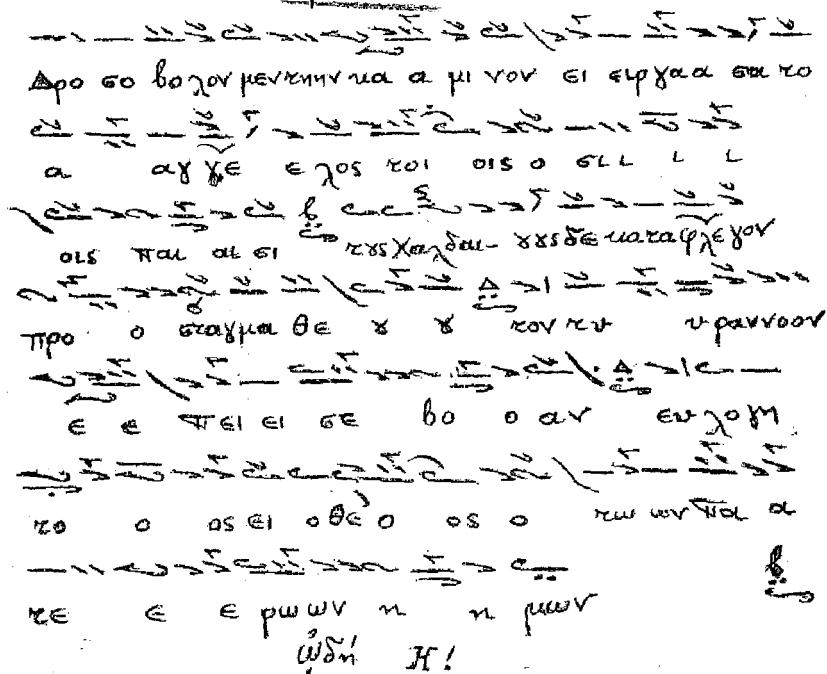 Δρο σο βο λον μεν την κα α μι νον ει ειρ γαα σα το
α αγ γε ε λος τοι οις ο σι ι ι ι
οις παι αι ει τους χαλδαι- ους δε κατα φλε γον
προ ο σταγμα θε ου ου τον τυ υ ραννοον
ε ε πει ει σε βο ο αν ευ λο γη
το ο ος ει ο θε ο ος ο τω ων πα α
τε ε ε ρω ων η η μων
ᾠδή Η!